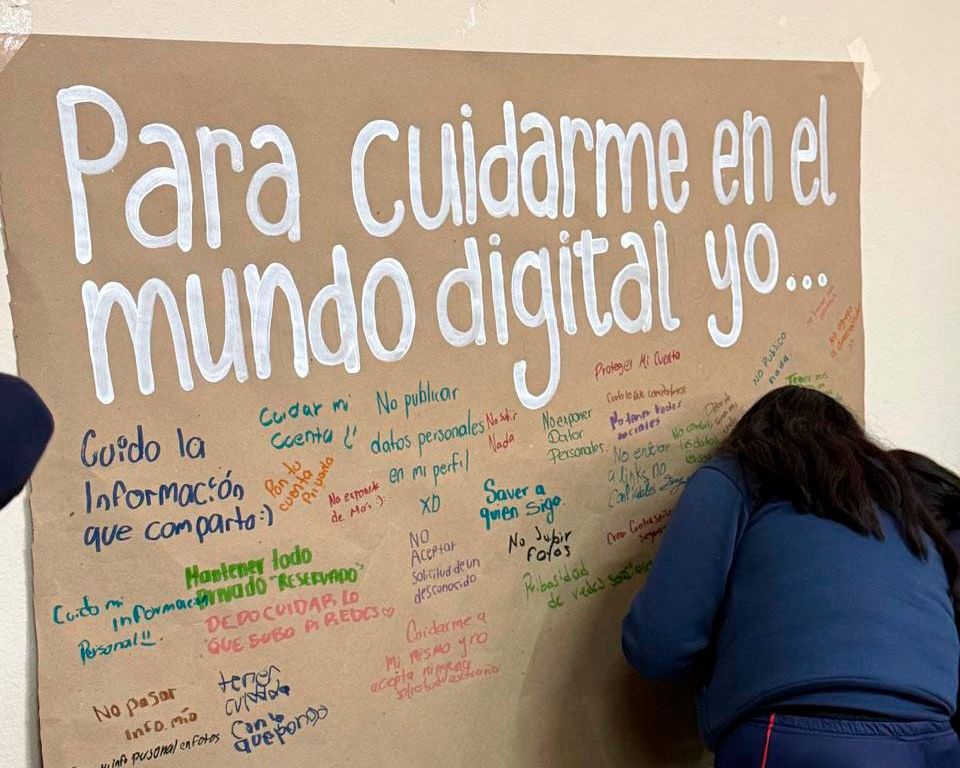 Para cuidarme en el
mundo digital yo...
Cuido la
Información
que comparto:)
Cuidar mi
cuenta !!
Pon tu
cuenta
Privada
No publicar
datos personales
en mi perfil
XD
No exponerte
de Mas :)
No subir
Nada
No exponer
Dator
Personales
Proteger Mi Cuenta
No Publico
nada
No tener redes
sociales
No entrar
a links no
Saver a
quien sigo.
No subir
Fotos
NO
Aceptar
solicitud de un
desconocido
Crear Contraseñas
Pribasidad
de redes
Mantener todo
privado "RESERVADO"
Cuido mi
Informacion
Personal!!
DEDO CUIDAR LO
QUE SUBO A REDES♡
Cuidarme a
Mi mismo y no
acepta ninguna
solicitud extraño
No pasar
Info. mía
tener
cuidado
Con lo
que pongo
info personal en Fotos